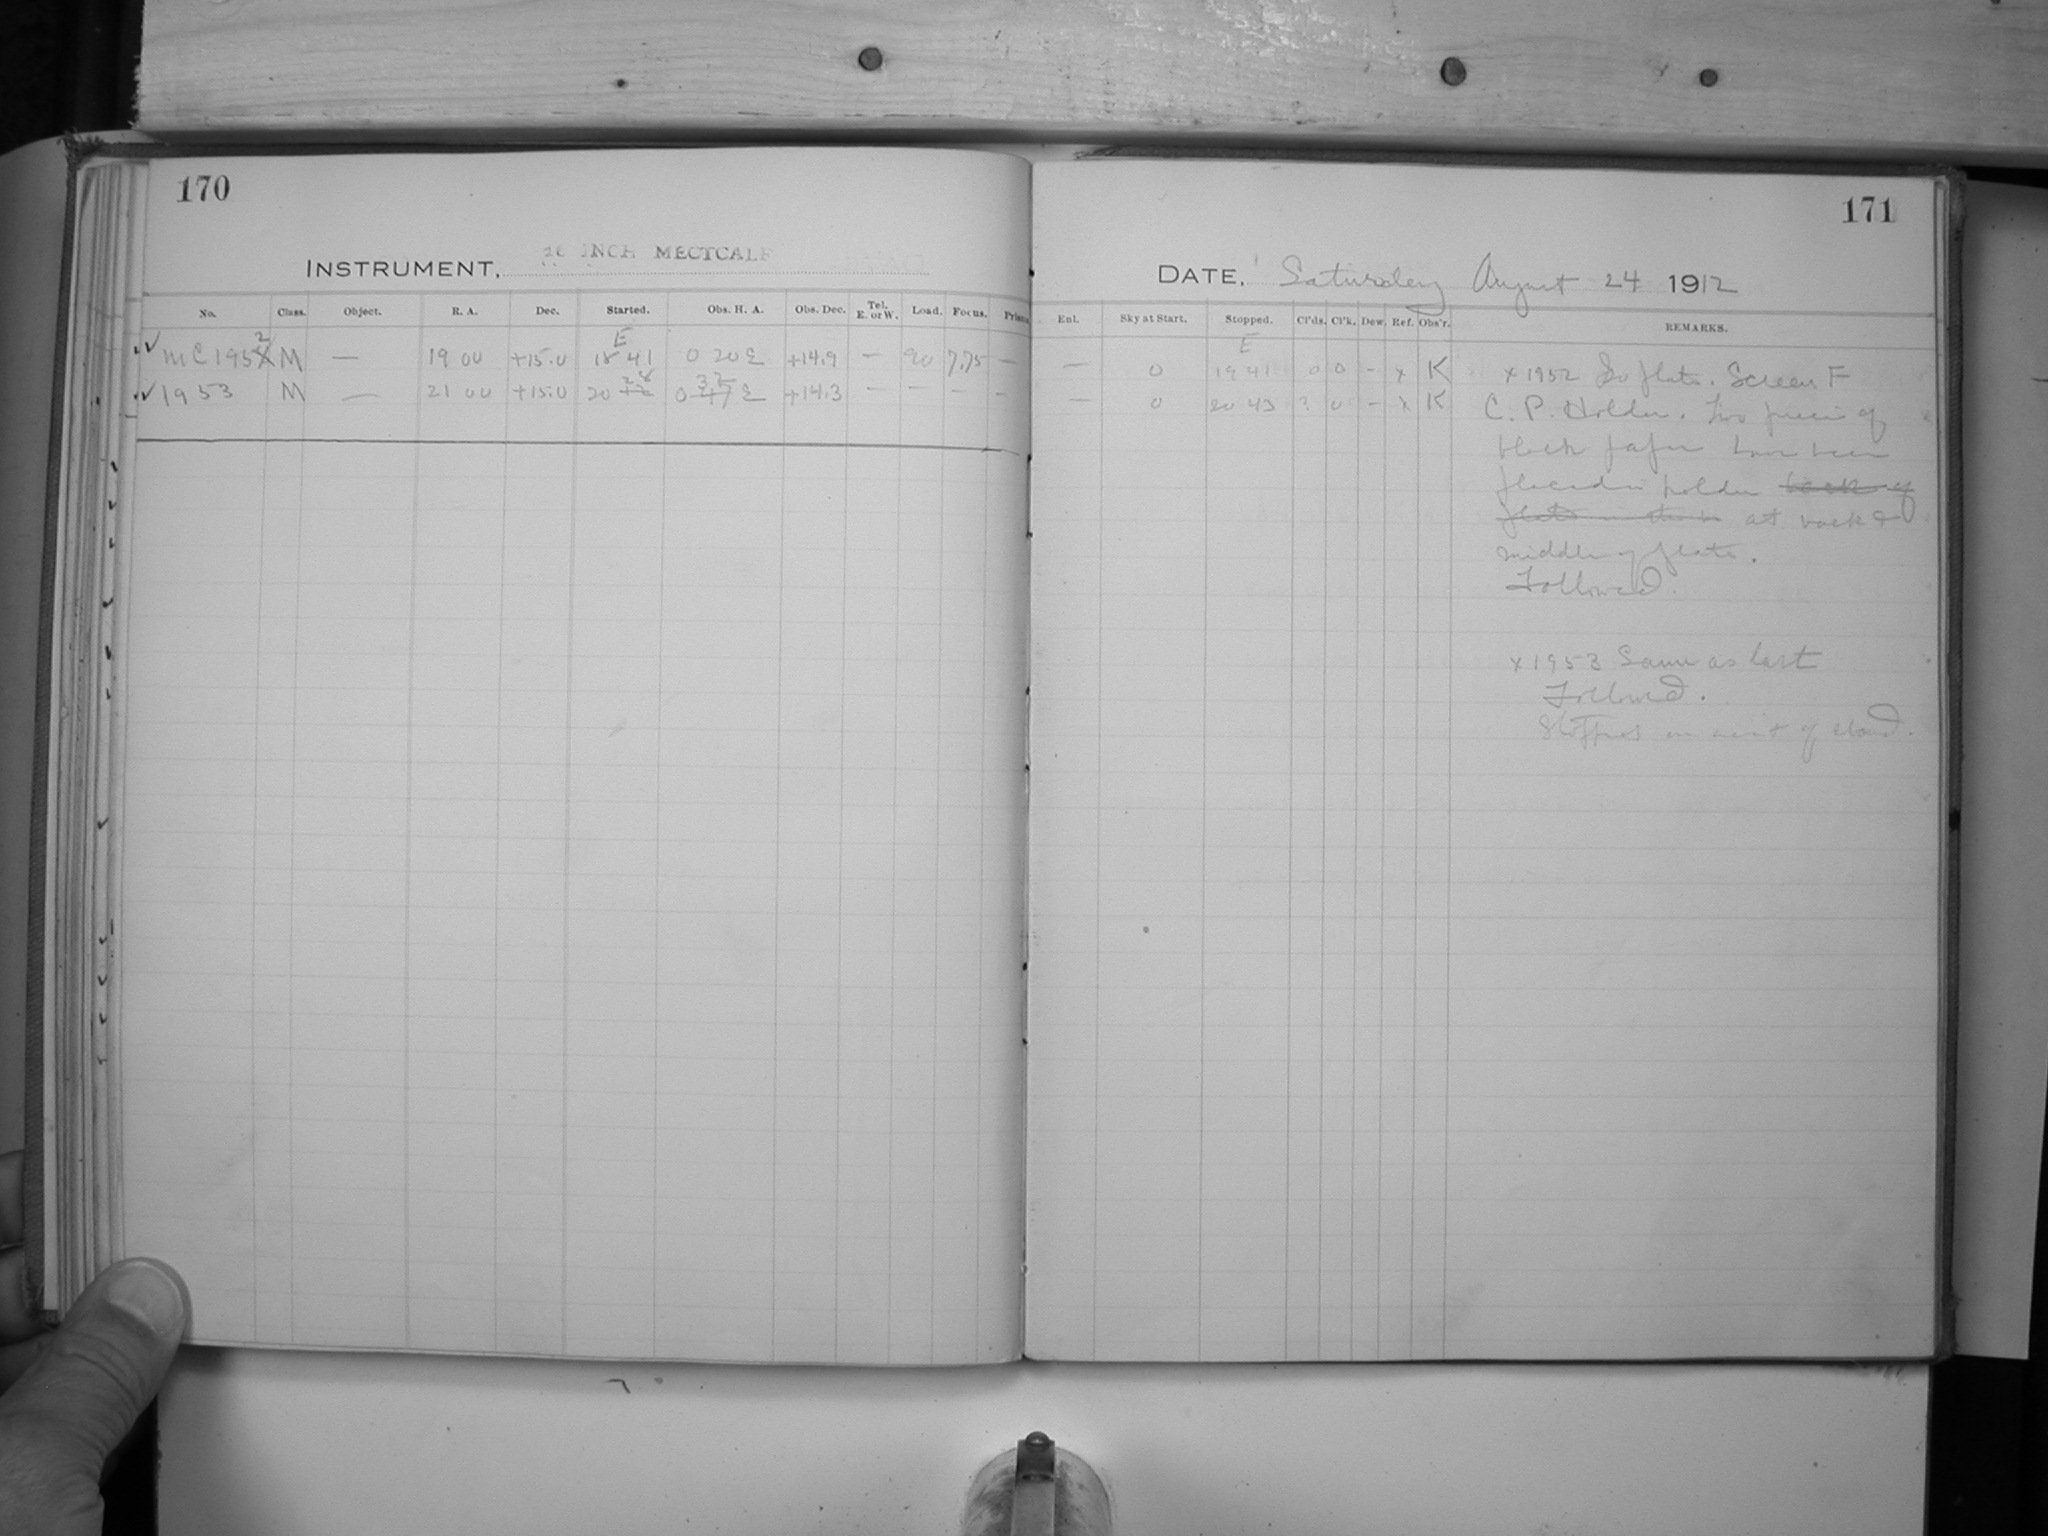 170
INSTRUMENT, INCH MECTCALF
No. Class. Object. R. A. Dec. Started. Obs. H. A. Obs. Dec. Tel. E. or W. Load. Focus.
E
MC 1952 M — 19 00 +15.0 18 41 0 20 E +14.9 — 90 7.75 —
1953 M — 21 00 +15.0 20 28 0 32 E +14.3 — — — –
171
DATE, Saturday August 24 1912
Enl. Sky at Start. Stopped. Cl'ds. Cl'k. Dew. Ref. Obs'r. REMARKS.
E
— 0 19 41 0 0 – x K x 1952 plate. Screen F
— 0 20 43 ? 0 – x K C. P. Holder. Two pieces of
black paper have been
placed in holder back of
at back &
middle of plate.
Followed.
x 1953 Same as last
Followed.
Stopped on acct of cloud.